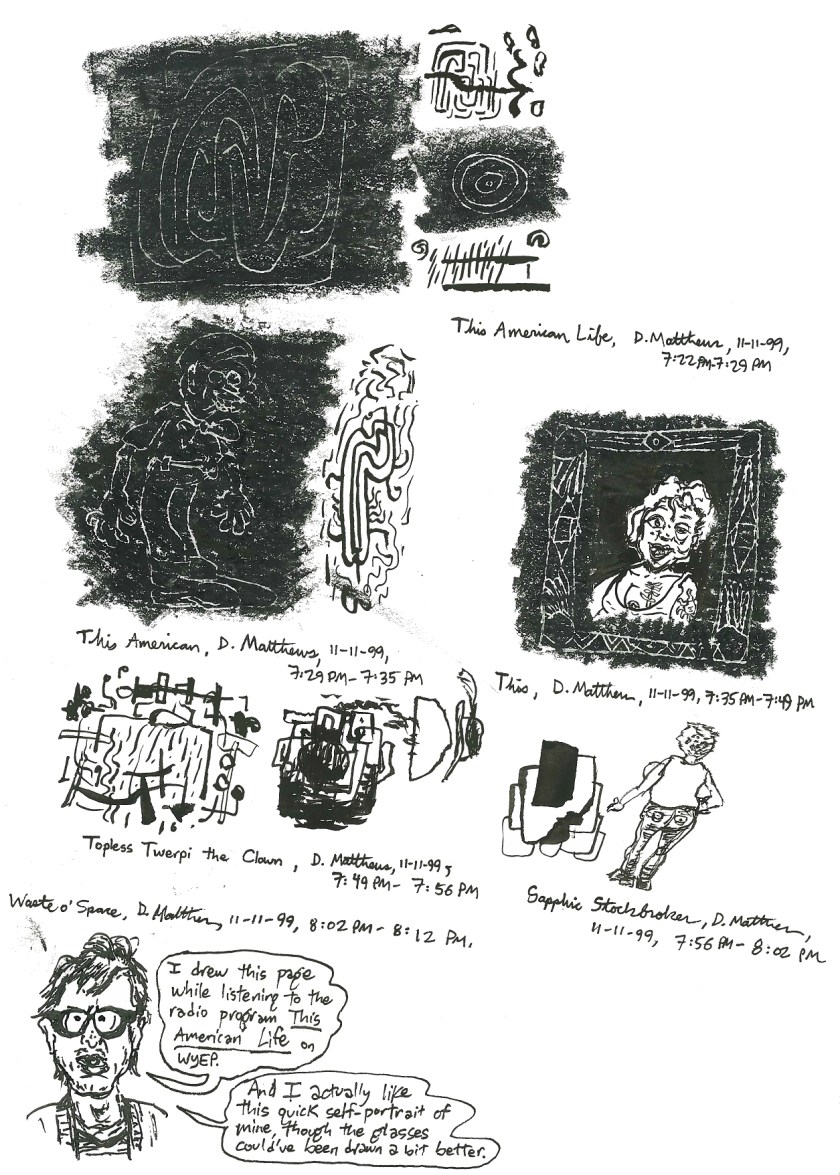 This American Life, D. Matthews, 11-11-99,
7:22 PM-7:29 PM
This American, D. Matthews, 11-11-99,
7:29 PM - 7:35 PM
This, D. Matthews, 11-11-99, 7:35 PM-7:49 PM
Topless Twerpi the Clown, D. Matthews, 11-11-99,
7:49 PM - 7:56 PM
Sapphic Stockbroker, D. Matthews,
11-11-99, 7:56 PM - 8:02 PM
Waste o' Space, D. Matthews, 11-11-99, 8:02 PM - 8:12 PM.
I drew this page
while listening to the
radio program This
American Life on
WYEP.
And I actually like
this quick self-portrait of
mine, though the glasses
could've been drawn a bit better.